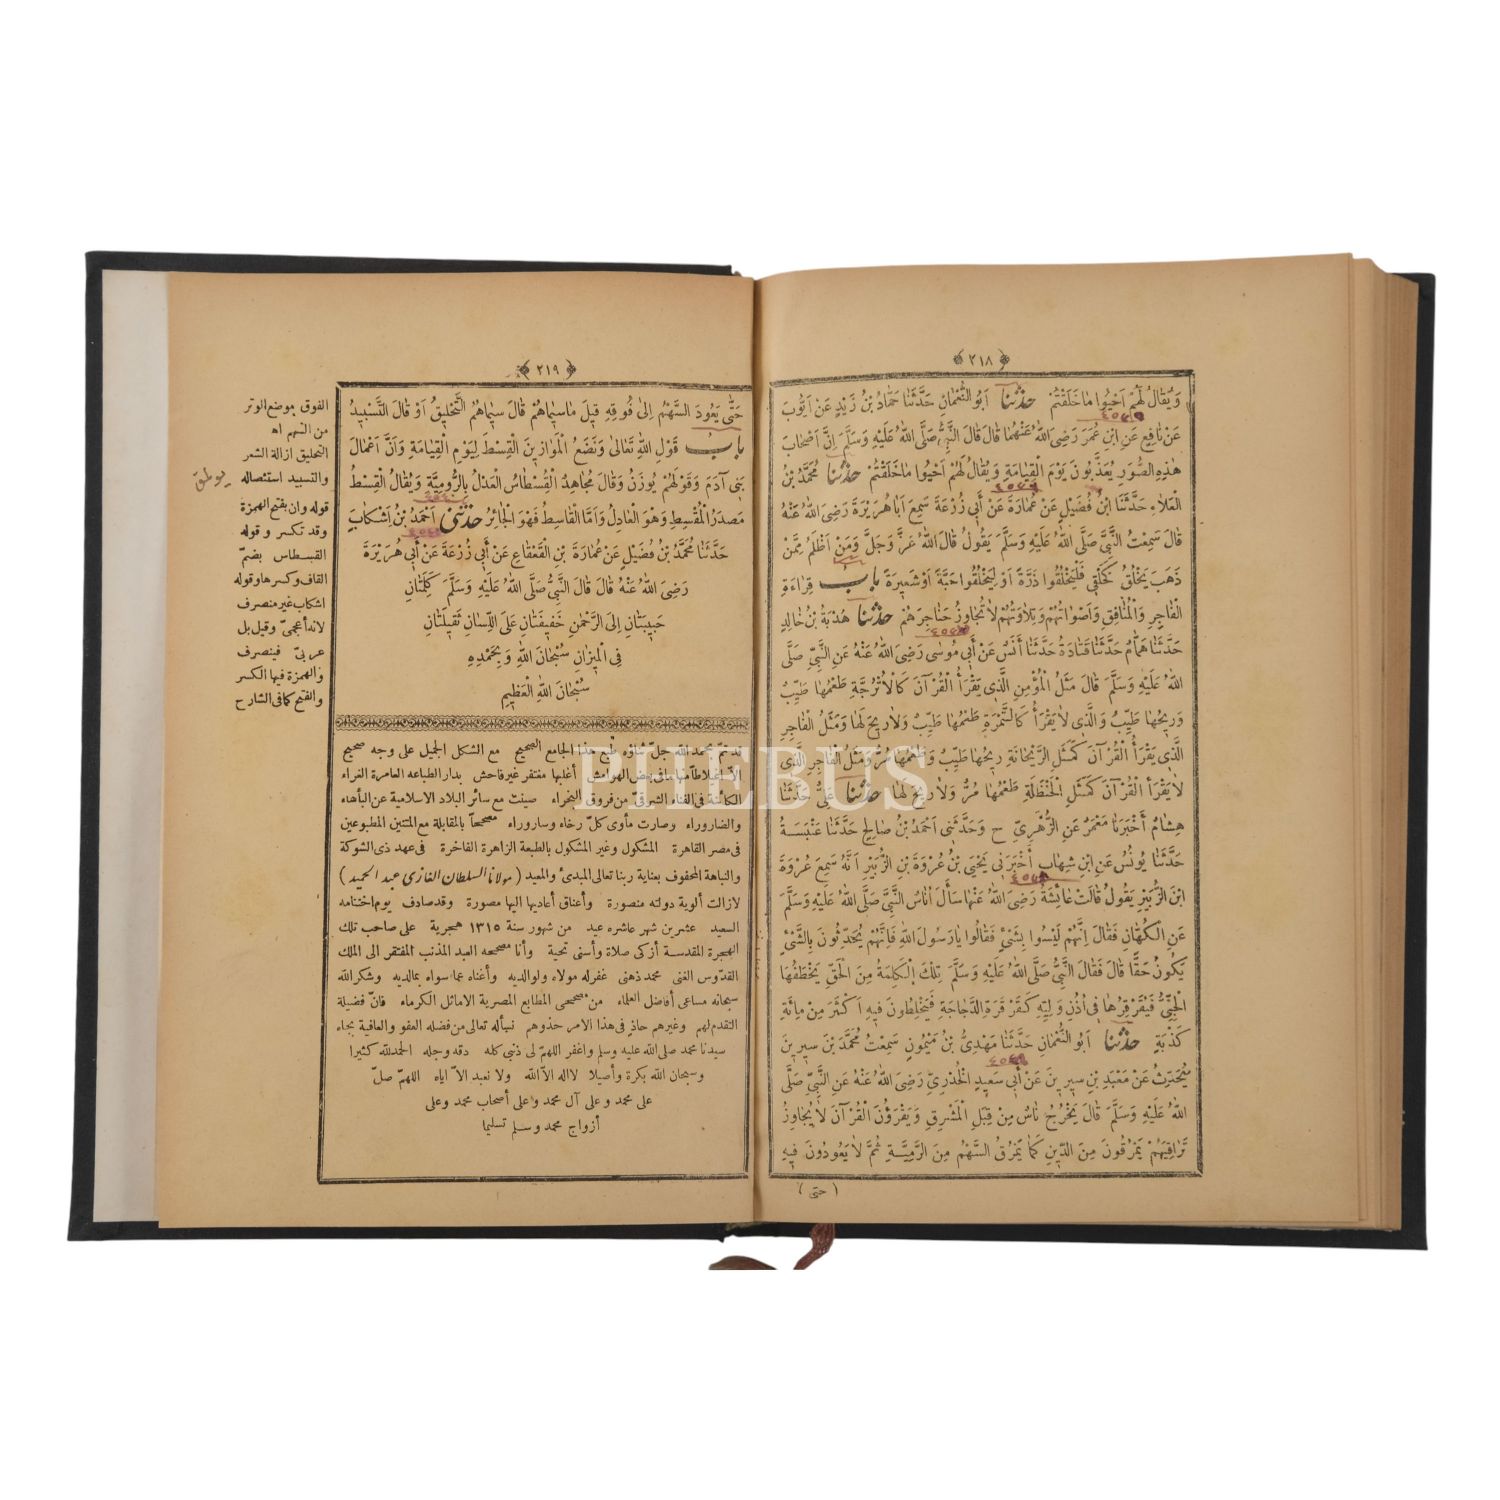 ﴿ ٢١٨ ﴾
وَيُقَالُ لَهُمْ اَحْيُوا مَا خَلَقْتُمْ حَدَّثَنَا اَبُو النُّعْمَانِ حَدَّثَنَا حَمَّادُ بْنُ زَيْدٍ عَنْ اَيُّوبَ
عَنْ نَافِعٍ عَنِ ابْنِ عُمَرَ رَضِىَ اللهُ عَنْهُمَا قَالَ قَالَ النَّبِىُّ صَلَّى اللهُ عَلَيْهِ وَسَلَّمَ اِنَّ اَصْحَابَ
هٰذِهِ الصُّوَرِ يُعَذَّبُونَ يَوْمَ الْقِيَامَةِ وَيُقَالُ لَهُمْ اَحْيُوا مَا خَلَقْتُمْ حَدَّثَنَا مُحَمَّدُ بْنُ
الْعَلَاءِ حَدَّثَنَا ابْنُ فُضَيْلٍ عَنْ عُمَارَةَ عَنْ اَبِى زُرْعَةَ سَمِعَ اَبَا هُرَيْرَةَ رَضِىَ اللهُ عَنْهُ
قَالَ سَمِعْتُ النَّبِىَّ صَلَّى اللهُ عَلَيْهِ وَسَلَّمَ يَقُولُ قَالَ اللهُ عَزَّ وَجَلَّ وَمَنْ اَظْلَمُ مِمَّنْ
ذَهَبَ يَخْلُقُ كَخَلْقِى فَلْيَخْلُقُوا ذَرَّةً اَوْ لِيَخْلُقُوا حَبَّةً اَوْ شَعِيرَةً بَابُ قِرَاءَةِ
الْفَاجِرِ وَالْمُنَافِقِ وَاَصْوَاتُهُمْ وَتِلَاوَتُهُمْ لَا تُجَاوِزُ حَنَاجِرَهُمْ حَدَّثَنَا هُدْبَةُ بْنُ خَالِدٍ
حَدَّثَنَا هَمَّامٌ حَدَّثَنَا قَتَادَةُ حَدَّثَنَا اَنَسٌ عَنْ اَبِى مُوسٰى رَضِىَ اللهُ عَنْهُ عَنِ النَّبِىِّ صَلَّى
اللهُ عَلَيْهِ وَسَلَّمَ قَالَ مَثَلُ الْمُؤْمِنِ الَّذِى يَقْرَأُ الْقُرْآنَ كَالْاُتْرُجَّةِ طَعْمُهَا طَيِّبٌ
وَرِيحُهَا طَيِّبٌ وَالَّذِى لَا يَقْرَأُ كَالتَّمْرَةِ طَعْمُهَا طَيِّبٌ وَلَا رِيحَ لَهَا وَمَثَلُ الْفَاجِرِ
الَّذِى يَقْرَأُ الْقُرْآنَ كَمَثَلِ الرَّيْحَانَةِ رِيحُهَا طَيِّبٌ وَطَعْمُهَا مُرٌّ وَمَثَلُ الْفَاجِرِ الَّذِى
لَا يَقْرَأُ الْقُرْآنَ كَمَثَلِ الْحَنْظَلَةِ طَعْمُهَا مُرٌّ وَلَا رِيحَ لَهَا حَدَّثَنَا عَلِىٌّ حَدَّثَنَا
هِشَامٌ اَخْبَرَنَا مَعْمَرٌ عَنِ الزُّهْرِىِّ ح وَحَدَّثَنِى اَحْمَدُ بْنُ صَالِحٍ حَدَّثَنَا عَنْبَسَةُ
حَدَّثَنَا يُونُسُ عَنِ ابْنِ شِهَابٍ اَخْبَرَنِى يَحْيَى بْنُ عُرْوَةَ بْنِ الزُّبَيْرِ اَنَّهُ سَمِعَ عُرْوَةَ
ابْنَ الزُّبَيْرِ يَقُولُ قَالَتْ عَائِشَةُ رَضِىَ اللهُ عَنْهَا سَأَلَ اُنَاسٌ النَّبِىَّ صَلَّى اللهُ عَلَيْهِ وَسَلَّمَ
عَنِ الْكُهَّانِ فَقَالَ اِنَّهُمْ لَيْسُوا بِشَىْءٍ فَقَالُوا يَا رَسُولَ اللهِ فَاِنَّهُمْ يُحَدِّثُونَ بِالشَّىْءِ
يَكُونُ حَقًّا قَالَ فَقَالَ النَّبِىُّ صَلَّى اللهُ عَلَيْهِ وَسَلَّمَ تِلْكَ الْكَلِمَةُ مِنَ الْحَقِّ يَخْطَفُهَا
الْجِنِّىُّ فَيُقَرْقِرُهَا فِى اُذُنِ وَلِيِّهِ كَقَرْقَرَةِ الدَّجَاجَةِ فَيَخْلِطُونَ فِيهِ اَكْثَرَ مِنْ مِائَةِ
كَذْبَةٍ حَدَّثَنَا اَبُو النُّعْمَانِ حَدَّثَنَا مَهْدِىُّ بْنُ مَيْمُونٍ سَمِعْتُ مُحَمَّدَ بْنَ سِيرِينَ
يُحَدِّثُ عَنْ مَعْبَدِ بْنِ سِيرِينَ عَنْ اَبِى سَعِيدٍ الْخُدْرِىِّ رَضِىَ اللهُ عَنْهُ عَنِ النَّبِىِّ صَلَّى
اللهُ عَلَيْهِ وَسَلَّمَ قَالَ يَخْرُجُ نَاسٌ مِنْ قِبَلِ الْمَشْرِقِ وَيَقْرَؤُنَ الْقُرْآنَ لَا يُجَاوِزُ
تَرَاقِيَهُمْ يَمْرُقُونَ مِنَ الدِّينِ كَمَا يَمْرُقُ السَّهْمُ مِنَ الرَّمِيَّةِ ثُمَّ لَا يَعُودُونَ فِيهِ
( حتى )
﴿ ٢١٩ ﴾
حَتّٰى يَعُودَ السَّهْمُ اِلٰى فُوقِهِ قِيلَ مَا سِيمَاهُمْ قَالَ سِيمَاهُمُ التَّحْلِيقُ اَوْ قَالَ التَّسْبِيدُ
بَابُ قَوْلِ اللهِ تَعَالٰى وَنَضَعُ الْمَوَازِينَ الْقِسْطَ لِيَوْمِ الْقِيَامَةِ وَاَنَّ اَعْمَالَ
بَنِى آدَمَ وَقَوْلَهُمْ يُوزَنُ وَقَالَ مُجَاهِدٌ الْقِسْطَاسُ الْعَدْلُ بِالرُّومِيَّةِ وَيُقَالُ الْقِسْطُ
مَصْدَرُ الْمُقْسِطِ وَهُوَ الْعَادِلُ وَاَمَّا الْقَاسِطُ فَهُوَ الْجَائِرُ حَدَّثَنِى اَحْمَدُ بْنُ اِشْكَابَ
حَدَّثَنَا مُحَمَّدُ بْنُ فُضَيْلٍ عَنْ عُمَارَةَ بْنِ الْقَعْقَاعِ عَنْ اَبِى زُرْعَةَ عَنْ اَبِى هُرَيْرَةَ
رَضِىَ اللهُ عَنْهُ قَالَ قَالَ النَّبِىُّ صَلَّى اللهُ عَلَيْهِ وَسَلَّمَ كَلِمَتَانِ
حَبِيبَتَانِ اِلَى الرَّحْمٰنِ خَفِيفَتَانِ عَلَى اللِّسَانِ ثَقِيلَتَانِ
فِى الْمِيزَانِ سُبْحَانَ اللهِ وَبِحَمْدِهِ
سُبْحَانَ اللهِ الْعَظِيمِ
الفوق موضع الوتر
من السهم اه
التحليق ازالة الشعر
والتسبيد استئصاله
قوله وان بفتح الهمزة
وقد تكسر وقوله
القسطاس بضمّ
القاف وكسرها وقوله
اشكاب غير منصرف
لانه أعجمىّ وقيل بل
عربىّ فينصرف
والهمزة فيها الكسر
والفتح كما فى الشارح
قد تمّ بحمد الله جلّ شاؤه طبع هذا الجامع الصحيح مع الشكل الجميل على وجه صحيح
الا أغلبها مغتفر غير فاحش بدار الطباعه العامرة الغراء
الكائنة فى الفناء الشرقىّ من فروق البغراء صينت مع سائر البلاد الاسلامية عن البأهاء
والضاروراء وصارت مأوى كلّ رخاء وساروراء مصححاً بالمقابلة مع المتنين المطبوعين
فى مصر القاهرة المشكول وغير المشكول بالطبعة الزاهرة الفاخرة فى عهد ذى الشوكة
والنباهة المحفوف بعناية ربنا تعالى المبدئ والمعيد ( مولانا السلطان الغازى عبد الحميد )
لازالت ألوية دولته منصورة وأعناق أعاديها اليها مصورة وقد صادف يوم اختتامه
السعيد عشرين شهر عاشره عيد من شهور سنة ١٣١٥ هجرية على صاحب تلك
الهجرة المقدسة أزكى صلاة وأسنى تحية وأنا مصححه العبد المذنب المفتقر الى الملك
القدّوس الغنى محمد ذهنى غفر له مولاه ولوالديه وأغناه عما سواه بما لديه وشكر الله
سبحانه مساعى أفاضل العلماء من مصححى المطابع المصرية الاماثل الكرماء فانّ فضيلة
التقدم لهم وغيرهم حاذٍ فى هذا الامر حذوهم نسأله تعالى من فضله العفو والعافية بجاه
سيدنا محمد صلى الله عليه وسلم واغفر اللهمّ لى ذنبى كله دقه وجله الحمد لله كثيرا
وسبحان الله بكرة وأصيلا لا اله الا الله ولا نعبد الا اياه اللهمّ صلّ
على محمد وعلى آل محمد وعلى أصحاب محمد وعلى
أزواج محمد وسلم تسليما
PHEBUS